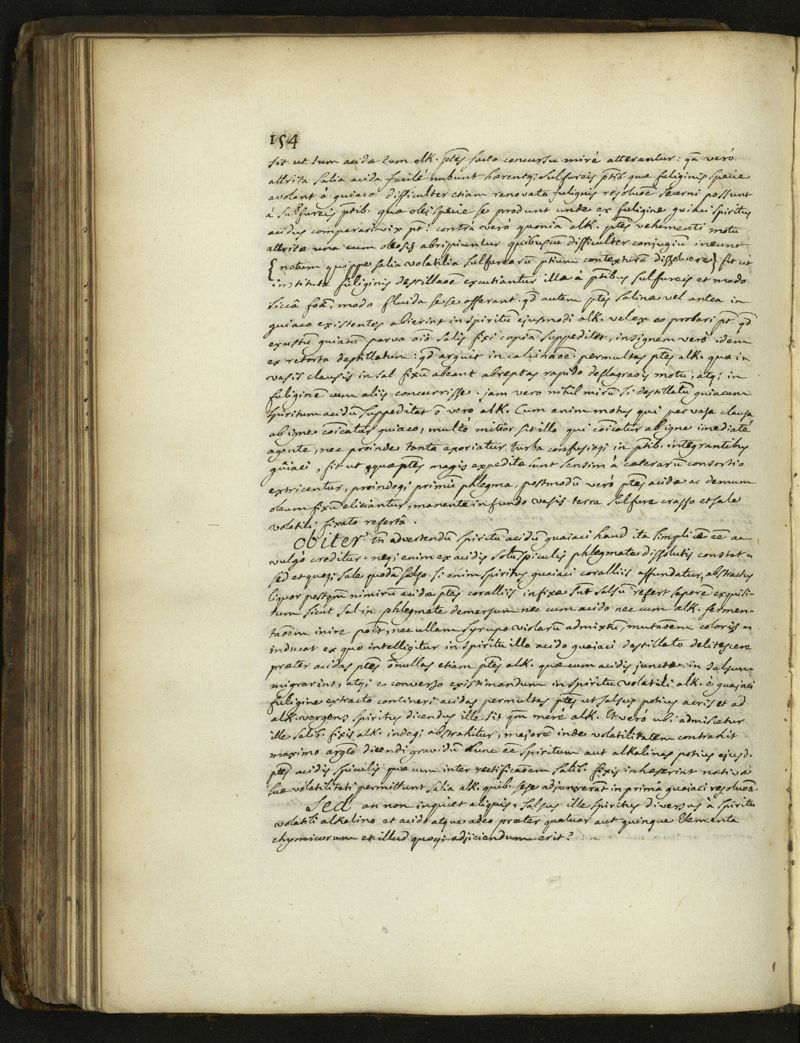 154
sit ut tum acidæ cum alk. ptes facto concursu mirè atterantur: qa verò
attrita salia acida facilè nubunt hærentq; sulfureis ptib. quæ fuliginis specie
avolant è guiaco difficulter etiam renovata fuliginis resoluoē secerni possunt
à sulfureis ptib. quæ olei specie se produnt unde ex fuligine guiaci spiritus
acidus comparari vix pt: contrà verò quoniā alk. ptes vehementi motu
attritæ una cum oleosis abripiuntur quibuscū difficulter conjugiū ineunt
{notum quippe salia volatilia sulfurearū ptium contexturā dissolvere} fit ut
instituta fuliginis destillaoē excutiantur illæ à ptibus sulfureis et modo
siccâ formâ, modo fluida sese offerant. qd autem ptes salinæ vel antea in
guiaco existentes abierint in spiritū ejusmodi alk. vel ex eo probari pt qd
exustū guiacū parva oīo salis fixi copiā suppeditet, insignem verò idem
ex retorta destillatum: qd arguit in calcinaoē permultas ptes alk. quæ in
vasis clausis in sal fixū abeant abreptas rapido deflagraōis motu, atq; in
fuliginē cum aliis concurrisse. jam vero nihil mirū si destillatū guiacum
spiritum acidū suppeditet ō vero alk. Cum enim motus qui per vasa clausa
ab igne coīcatur guiaco, multò mitior sit illo qui coīcatur ab igne imediatè
agente, nec proinde tanta exoriatur turba confusioq; in ptib. integrantibus
guiaci, fit ut quæ ptes magis expeditæ sunt sensim à cæterarū consortio
extricentur, proindeq; primū phlegma, postmodū verò ptes acidæ ac demum
oleum fixū eliciantur, manente in fundo vasis terra sulfure crasso et sale
volatili fixato refertâ.
Obiter tn advertendū spiritū acidū guaiaci haud ita simplicē eē ac
vulgò creditur. neq; enim ex acidis solū spiculis phlegmate dissolutis constat
sed et quoq; sale quodā salso. si enim spiritus guaiaci coralliis affundatur, abstractus
liquor postqm nimirū acidæ ptes coralliis infixæ sūt salsū refert saporē exquisi-
tum sicut sal in phlegmate demersum nec cum acido nec cum alk. fermen-
taoēm inire potest, nec ullam syrupo violarū admixtū, mutaoēm coloris
inducat ex quo intelligitur in spiritu illo acido guaiaci destillato delitescere
præter acidas ptes ōnullas etiam ptes alk. quæ cum acidis junctæ in salsum
migrarint, atq; e converso existimandum in spiritu volatili alk. è guaiaci
fuligine extracto contineri acidas permultas ptes ut salsus potius acris et ad
alk. vergens spiritus dicendus ille sit qm merè alk. Et verò ubi admiscetur
ille salib. fixis alk. indeq; abstrahitur, majorē inde volatilitatem contrahit
maximo argto dicendi gravidū hunc eē spiritum aut alkalinas potius ejusd.
ptes acidis spiculis quæ cum inter rectificaoēm salib. fixis inhæserint nativæ
suæ volatilitati permittunt salia alk. quib. sese adjunxerat in prima guaiaci resoluoē
Sed an non inquiet aliquis, salsus ille spiritus diversus à spiritu
volatili alkalino et acido atque adeo præter quatuor aut quinque Elementa
chymicorum et illud quoq; adjiciendum erit?